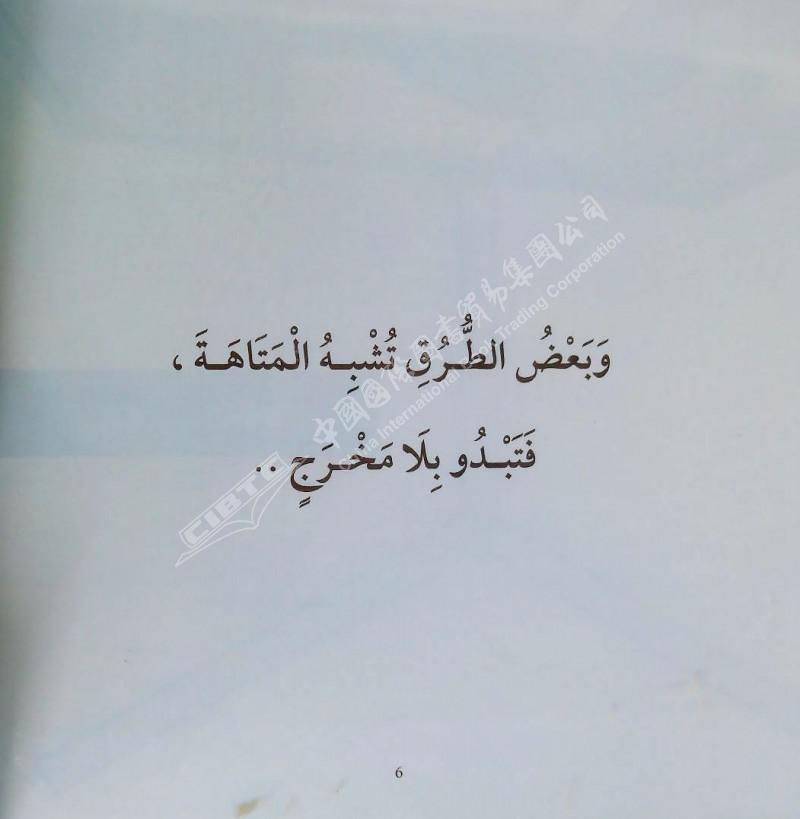 وَبَعْضُ الطُّـرُقِ تُشْبِـهُ الْمَتَاهَـةَ ،
فَتَبْـدُو بِلَا مَخْـرَجٍ ..
中國國際圖書貿易集團公司
China International Book Trading Corporation
CIBTC
6